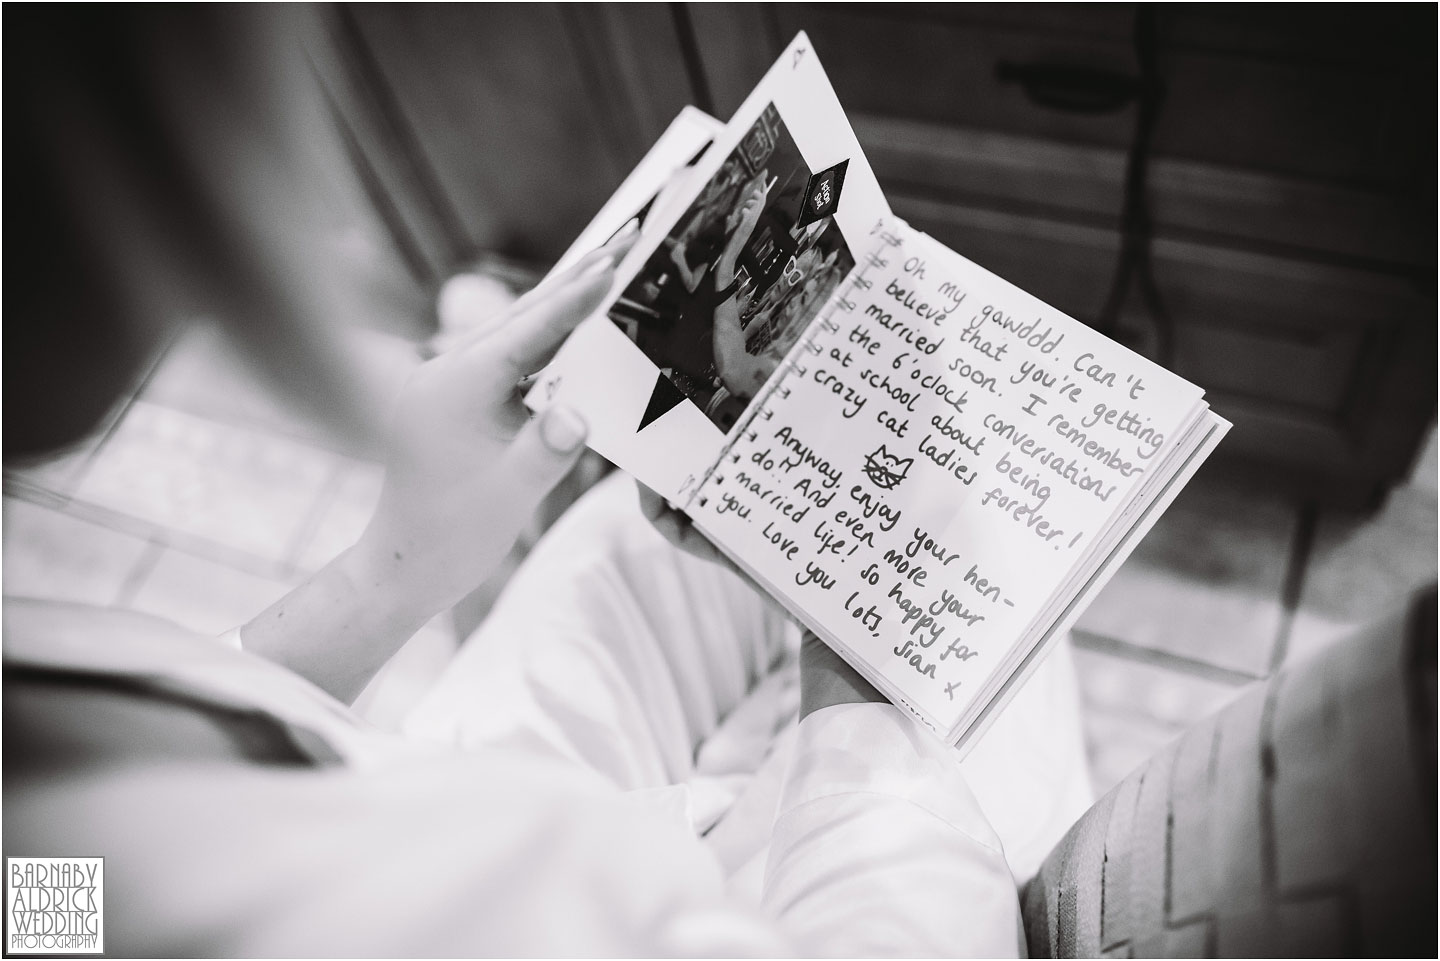 Action
Shot
Oh my gawddd. Can't
believe that you're getting
married soon. I remember
the 6'oclock conversations
at school about being
crazy cat ladies forever!
Anyway, enjoy your hen-
do!! And even more your
married life! So happy for
you. Love you lots,
Sian x
BARNABY
ALDRICK
WEDDING
PHOTOGRAPHY